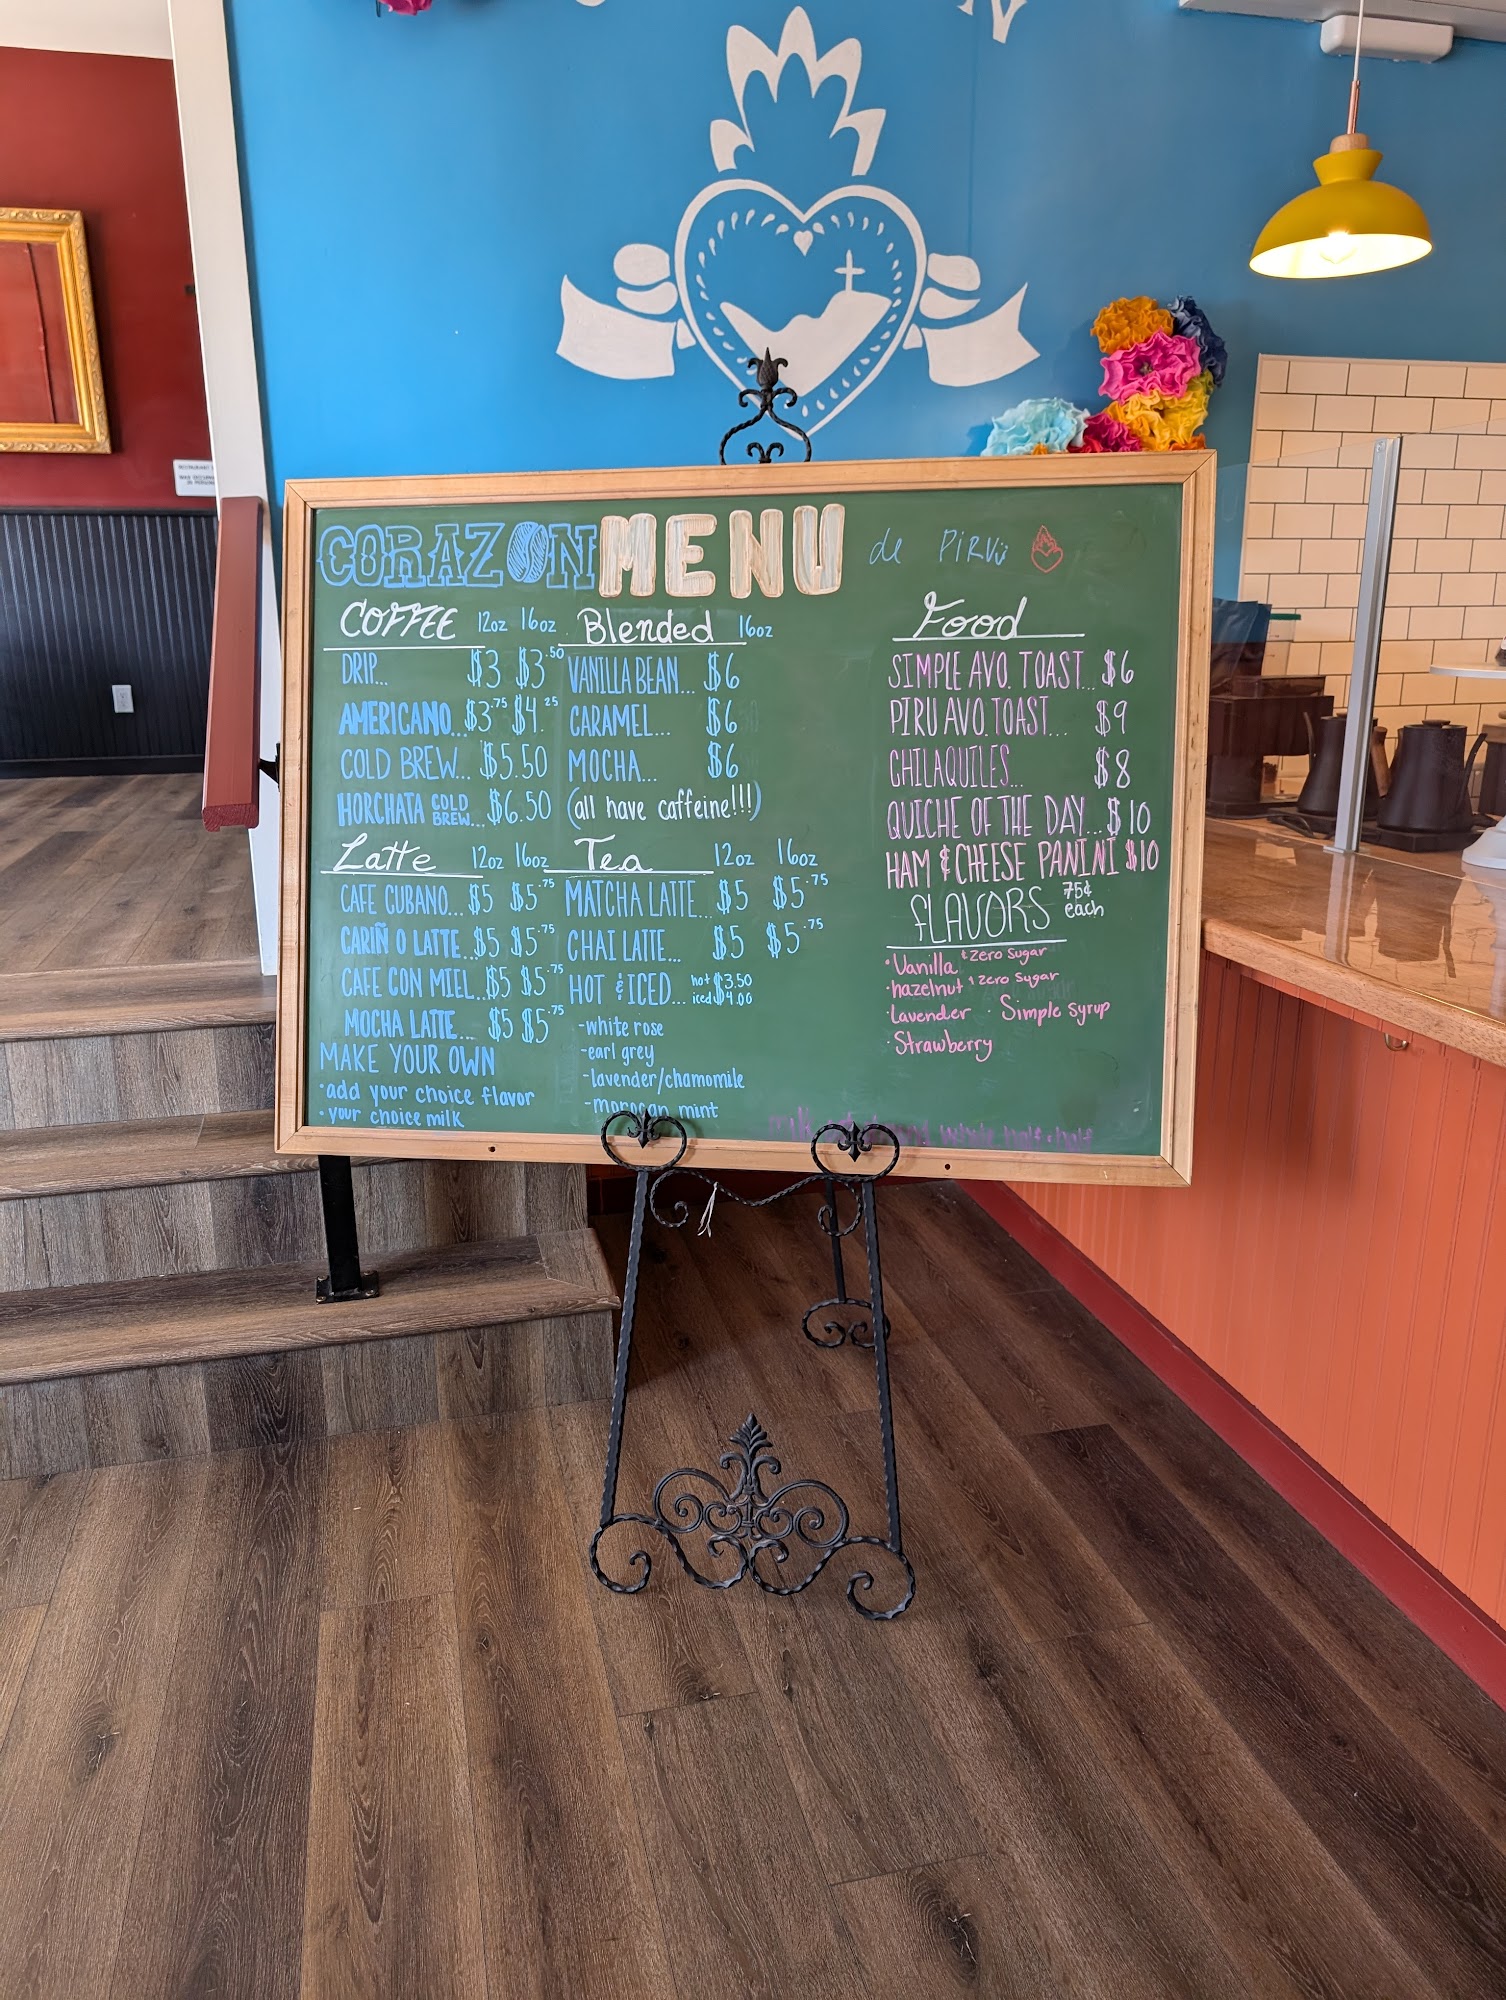 CORAZON MENU de PIRU
COFFEE 12oz 16oz
DRIP... $3 $3.50
AMERICANO... $3.75 $4.25
COLD BREW... $5.50
HORCHATA COLD BREW... $6.50
Latte 12oz 16oz
CAFE CUBANO... $5 $5.75
CARIÑO LATTE... $5 $5.75
CAFE CON MIEL... $5 $5.75
MOCHA LATTE... $5 $5.75
MAKE YOUR OWN
• add your choice flavor
• your choice milk
Blended 16oz
VANILLA BEAN... $6
CARAMEL... $6
MOCHA... $6
(all have caffeine!!!)
Tea 12oz 16oz
MATCHA LATTE... $5 $5.75
CHAI LATTE... $5 $5.75
HOT & ICED... hot $3.50
iced $4.00
-white rose
-earl grey
-lavender/chamomile
-morocan mint
Food
SIMPLE AVO. TOAST... $6
PIRU AVO. TOAST... $9
CHILAQUILES... $8
QUICHE OF THE DAY... $10
HAM & CHEESE PANINI $10
FLAVORS 75¢ each
• Vanilla & Zero Sugar
• hazelnut & Zero Sugar
• Lavender • Simple Syrup
• Strawberry